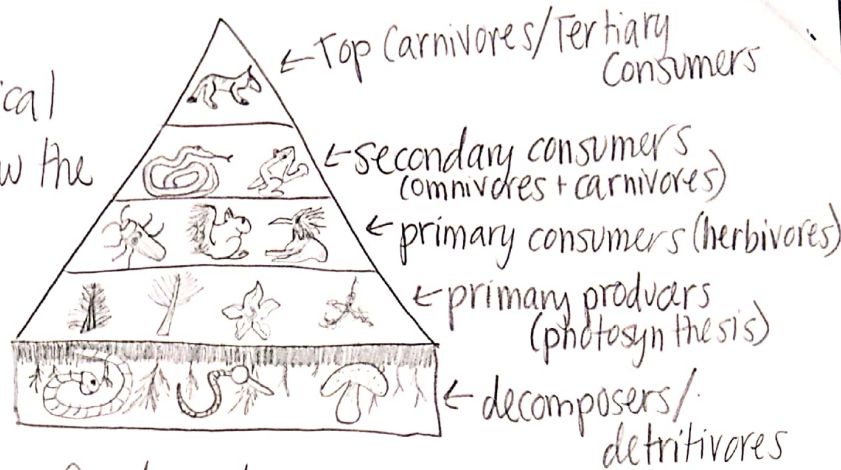 ←Top Carnivores/Tertiary
Consumers
ical
w the
←secondary consumers
(omnivores + carnivores)
←primary consumers (herbivores)
←primary producrs
(photosynthesis)
←decomposers/
detritivores